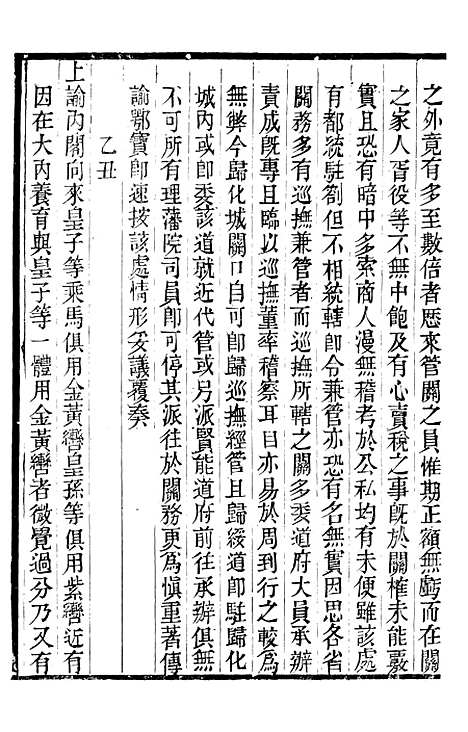 之外竟有多至數倍者歷來管關之員惟期正額無虧而在關
之家人胥役等不無中飽及有心賣稅之事旣於關榷未能覈
實且恐有暗中多索商人漫無稽考於公私均有未便雖該處
有都統駐劄但不相統轄卽令兼管亦恐有名無實因思各省
關務多有巡撫兼管者巡撫所轄之關多委道府大員承辦
責成旣專且臨以巡撫董率稽察耳目亦易於周到行之較爲
無弊今歸化城關口自可卽歸巡撫經管且歸綏道卽駐歸化
城內或卽委該道就近代管或另派賢能道府前往承辦俱無
不可所有理藩院司員卽可停其派往於關務更爲愼重著傳
諭鄂寶卽速按該處情形妥議覆奏
乙丑
上諭內閣向來皇子等乘馬俱用金黃轡皇孫等俱用紫轡近有
因在大內養育與皇子等一體用金黃轡者微覺過分乃又有